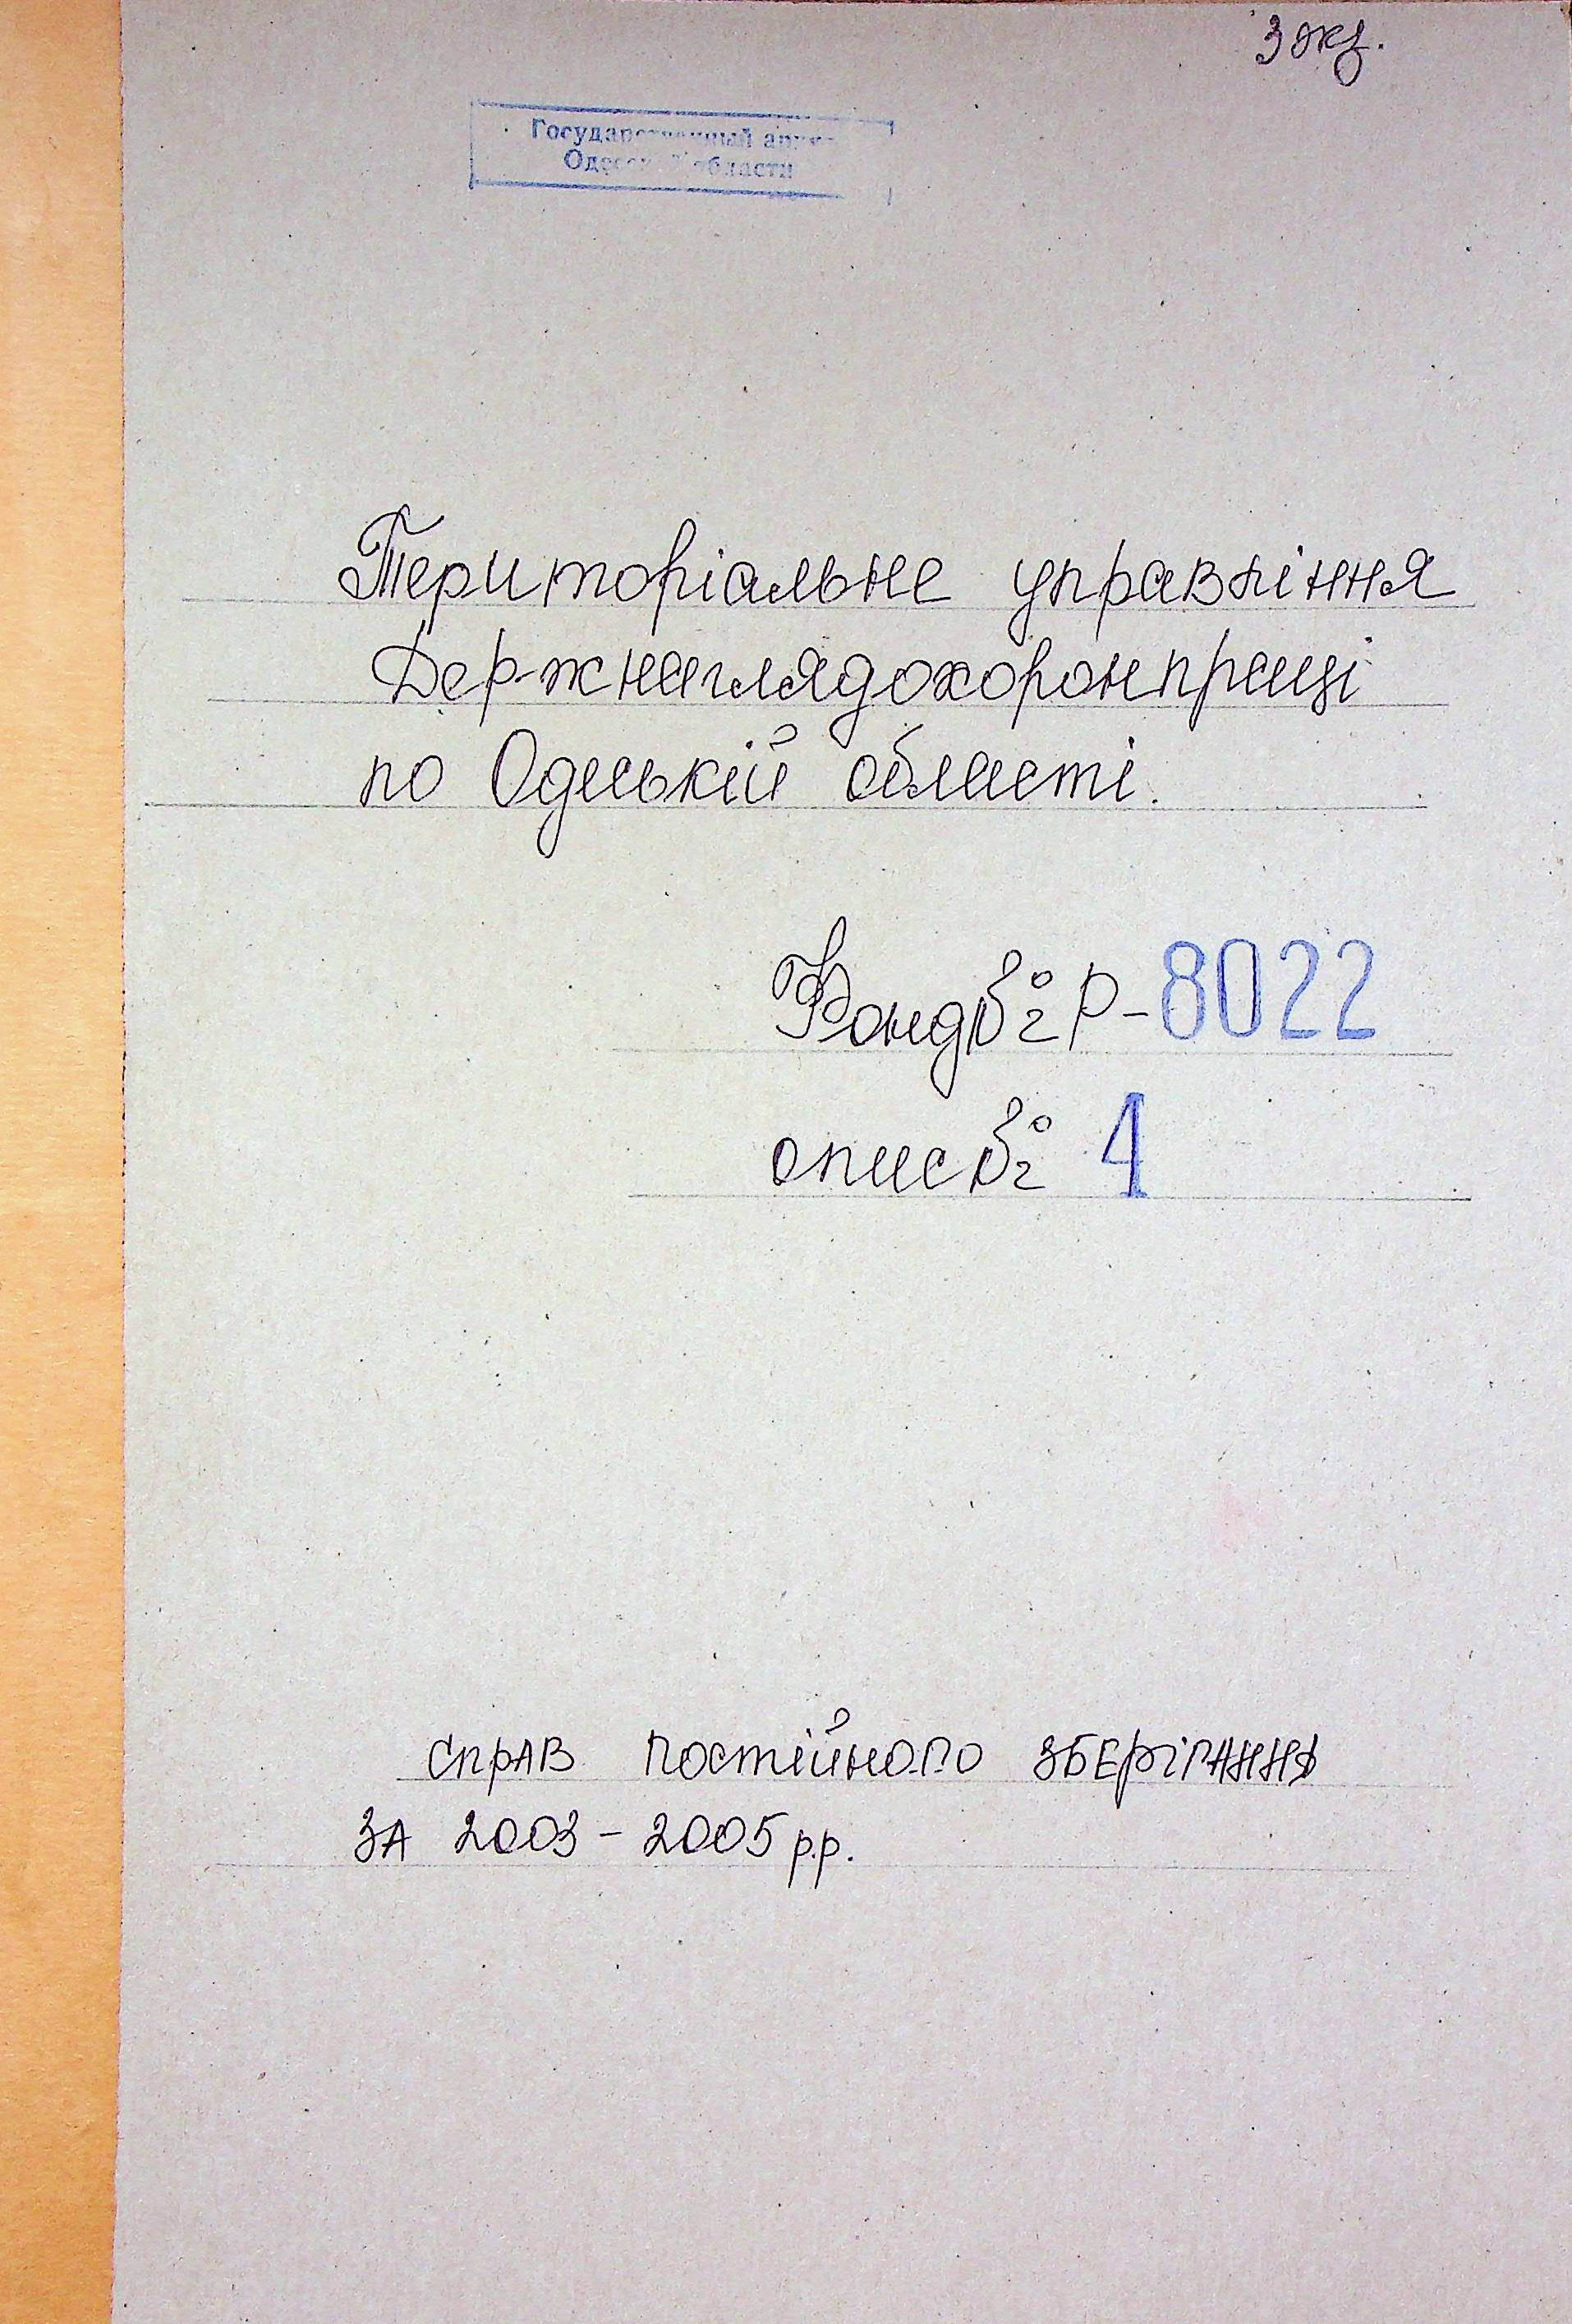 3 экз.
Государственный архив
Одесской области
Територіальне управління
Держнаглядохоронпраці
по Одеській області.
Фонд № Р-8022
опис № 1
справ постійного зберігання
за 2003 - 2005 р.р.